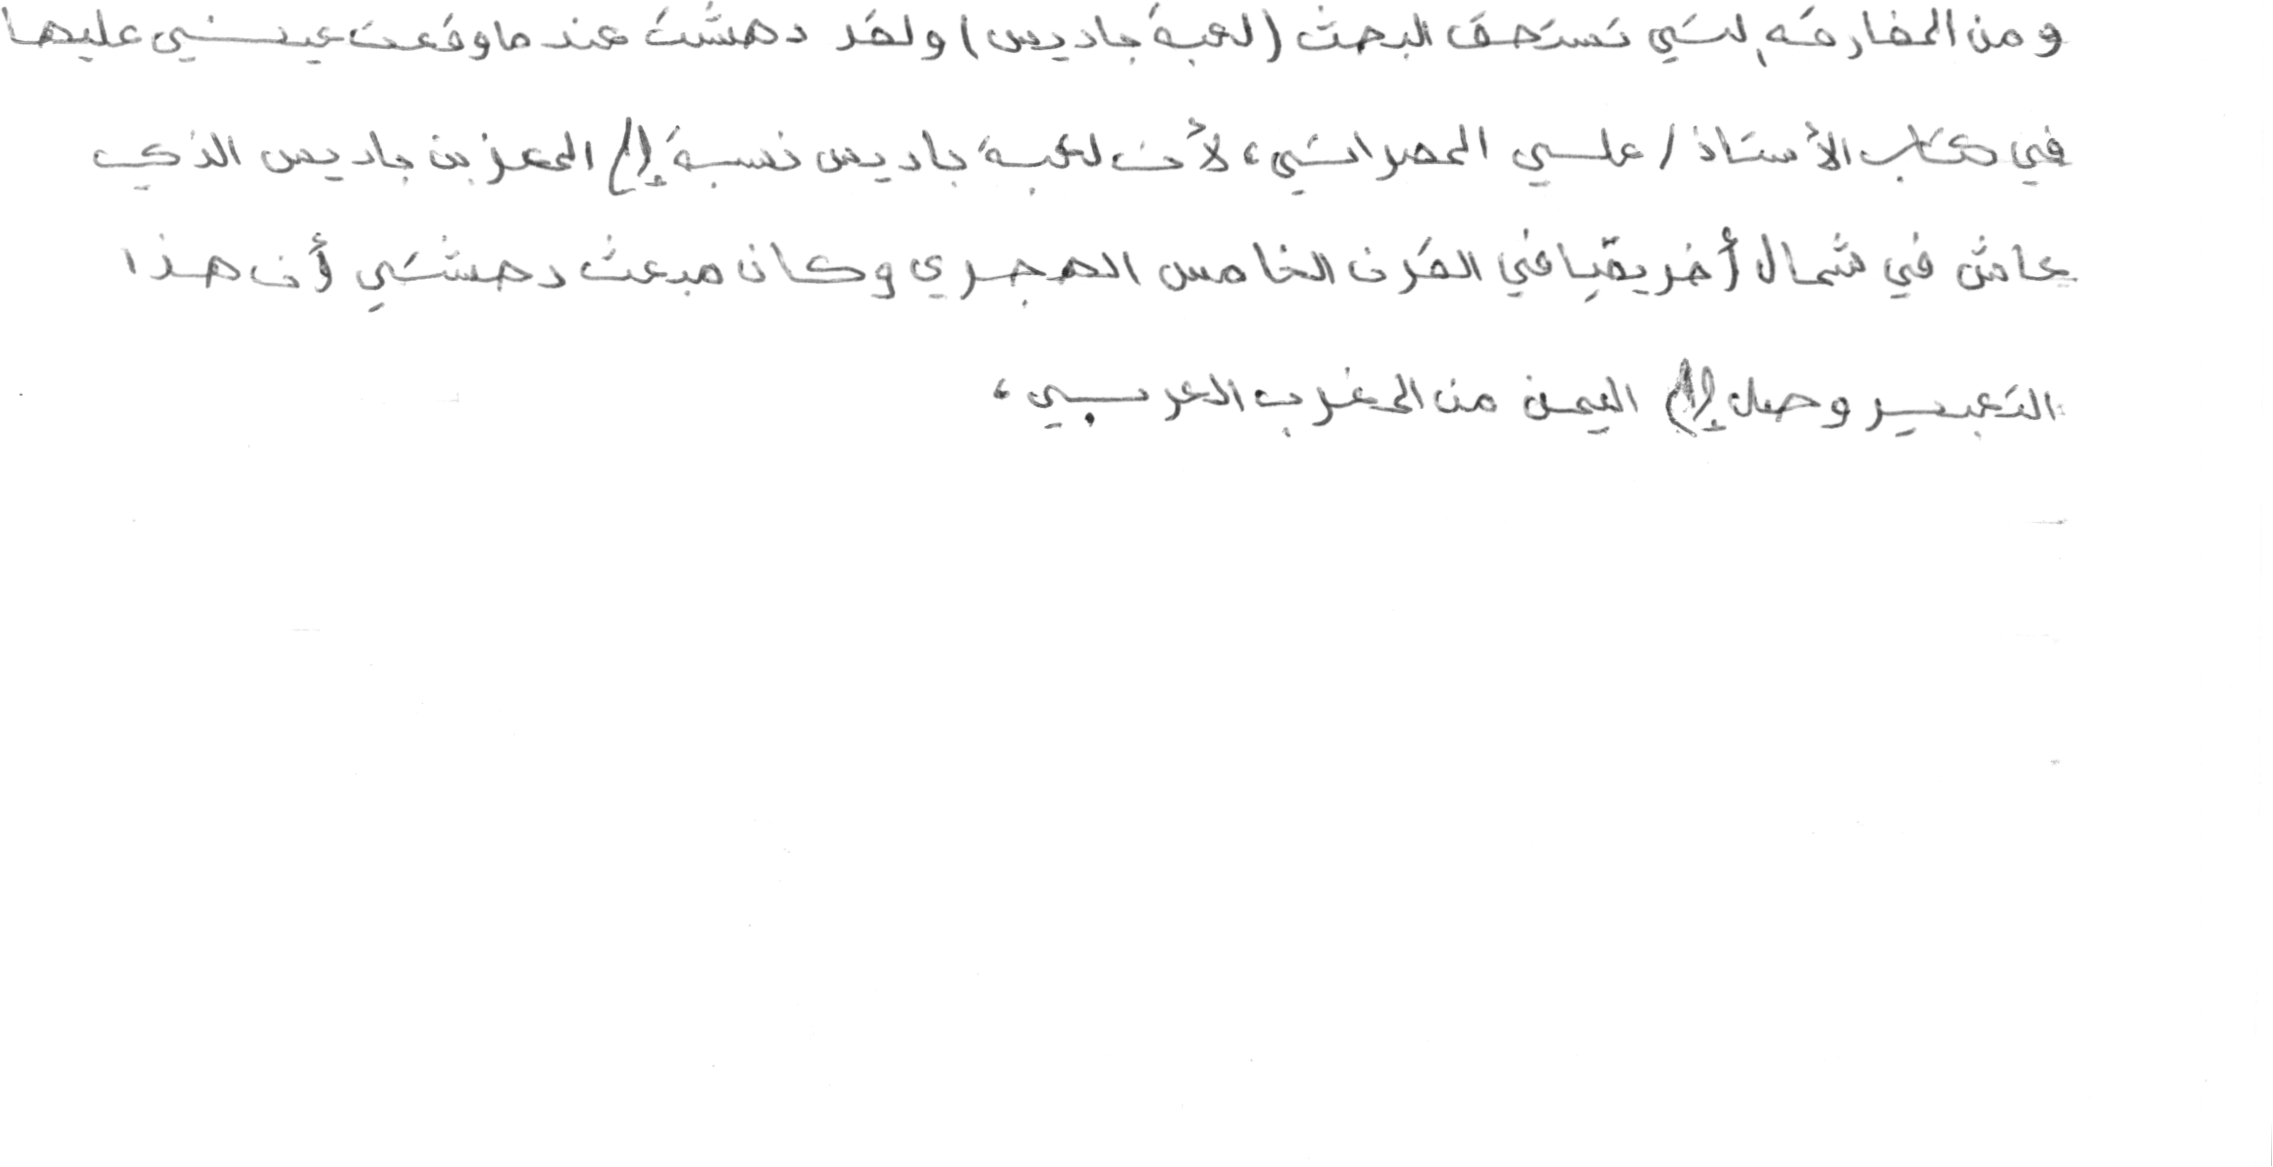 ومن المفارقه التي تستحق البحث (لعبة باديس) ولقد دهشت عندما وقعت عيني عليها
في كتاب الأستاذ / علي المصراتي، لأن لعبة باديس نسبة إلى المعز بن باديس الذي
عاش في شمال أفريقيا في القرن الخامس الهجري وكان مبعث دهشتي أن هذا
التعبير وصل إلى اليمن من المغرب العربي،